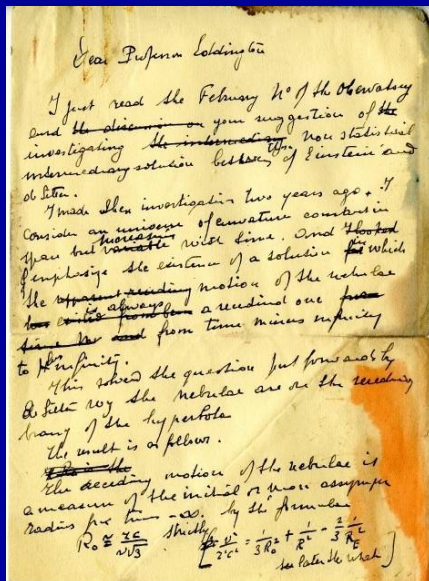 Dear Professor Eddington
I just read the February N° of the Observatory
and the discussion on your suggestion of the
investigating the intermediary non statistical
intermediary solution between of Einstein and
de Sitter.
I made these investigations two years ago. I
consider an universe of curvature constant in
space but variable increasing with time. And I
I emphasize the existence of a solution in which
the apparent receding motion of the nebulae
is always a receding one from
from time minus infinity
to + infinity.
This solved the question put forwards by
de Sitter why the nebulae are on the receding
of the hyperbola
The result is as follows.
The receding motion of the nebulae is
a measure of the initial or more
radius for time -∞. by the formulae
R₀ ≅ rc/v√3 strictly [v²/r²c² = 1/3R₀² + 1/R² - 2/3 1/R_E²
see later the what]